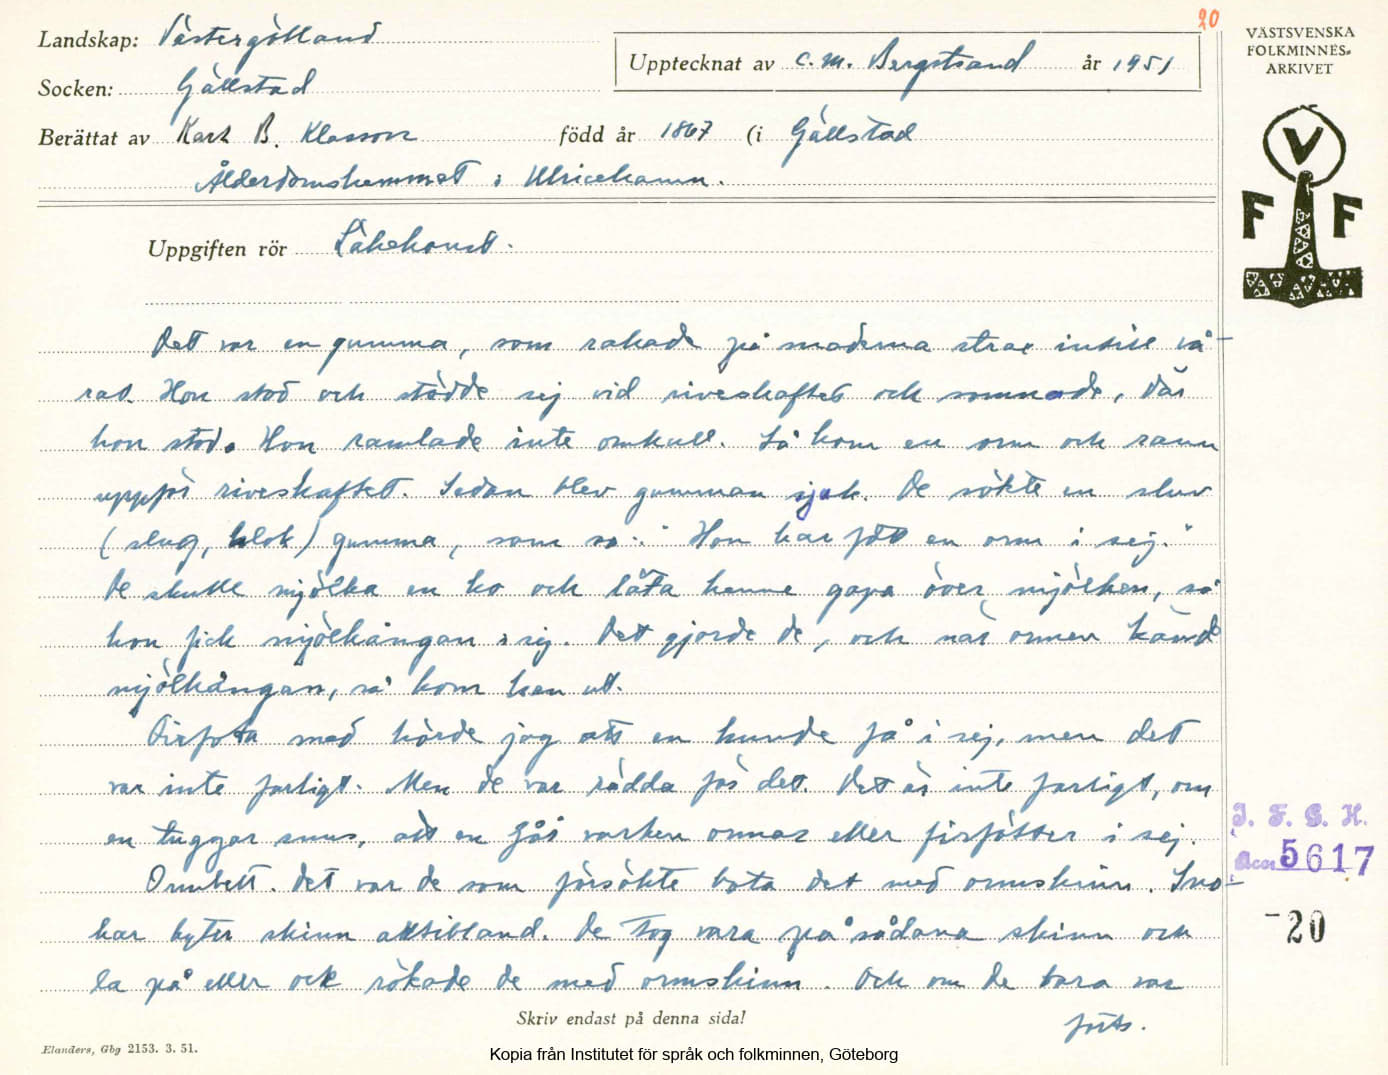 20
Landskap: Västergötland
VÄSTSVENSKA
FOLKMINNES-
ARKIVET
Upptecknat av C. M. Bergstrand år 1951
Socken: Gällstad
Berättat av Karl B. Klasson född år 1867 (i Gällstad
Ålderdomshemmet i Ulricehamn.
V
F F
Uppgiften rör Läkekonst.
Det var en gumma, som rakade på maderna strax intill vå-
rat. Hon stod och stödde sej vid riveskaftet och somnade, där
hon stod. Hon ramlade inte omkull. Så kom en orm och rann
uppför riveskaftet. Sedan blev gumman sjuk. De sökte en sluv
(slug, klok) gumma, som sa: "Hon har fått en orm i sig."
De skulle mjölka en ko och låta henne gapa över mjölken, så
hon fick mjölkångan i sig. Det gjorde de, och när ormen kände
mjölkångan, så kom han ut.
Firfota med hörde jag att en kunde få i sej, men det
var inte farligt. Men de var rädda för det. Det är inte farligt, om
en tuggar snus, att en får varken ormar eller firfötter i sej.
Ormbett. Det var de som försökte bota det med ormskinn. Sno-
kar byter skinn alltibland. De tog vara på sådana skinn och
la på eller ock rökade de med ormskinn. Och om de bara var
forts.
I. F. G. H.
Acc 5617
-20
Skriv endast på denna sida!
Elanders, Gbg 2153. 3. 51.
Kopia från Institutet för språk och folkminnen, Göteborg